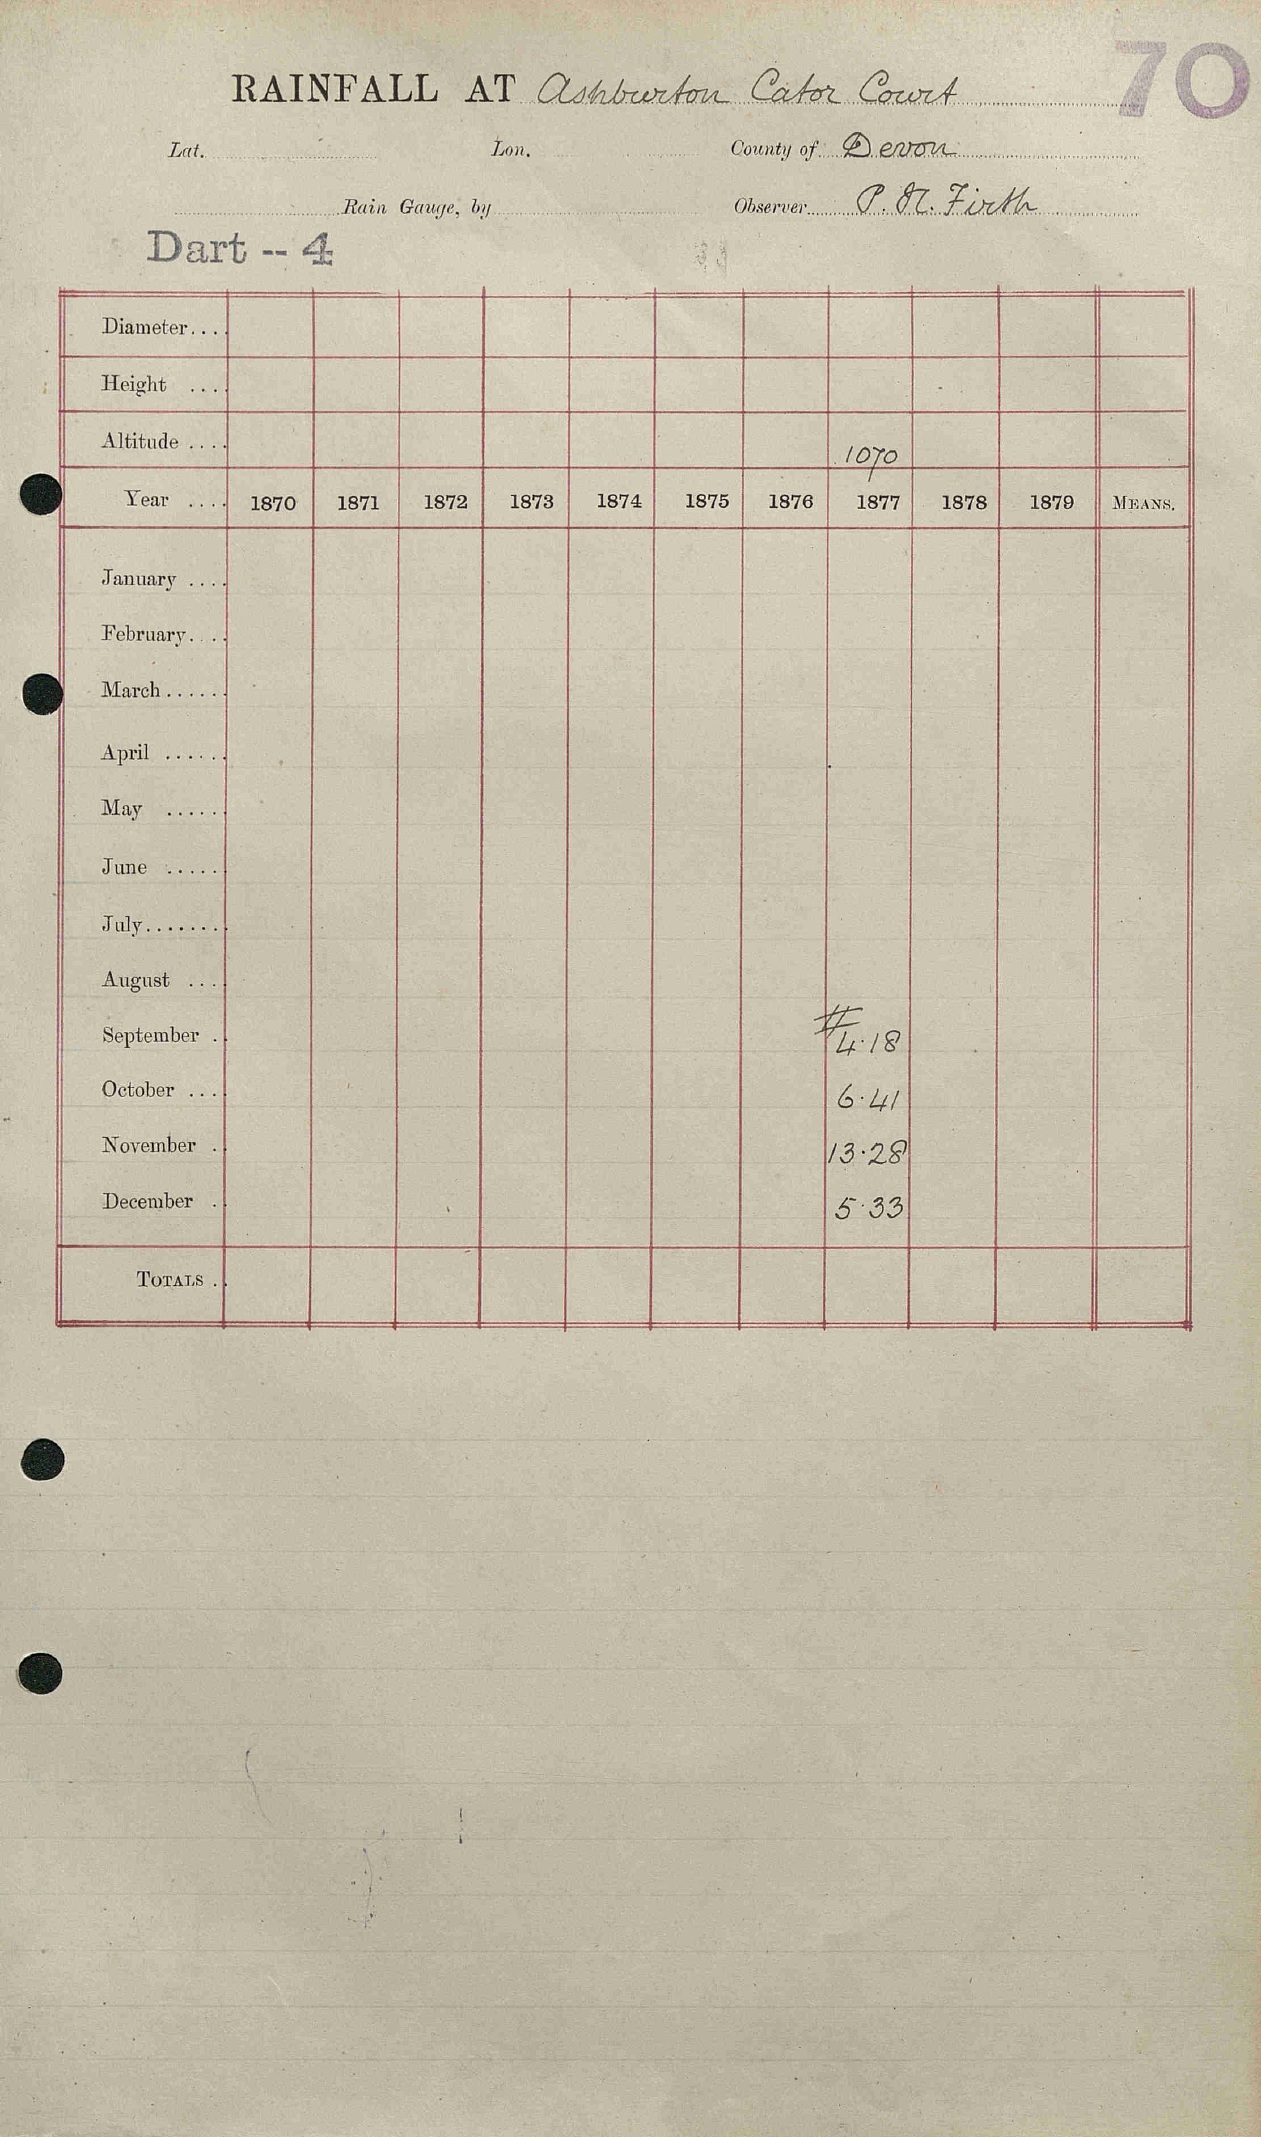 70
RAINFALL AT Ashburton Cator Court
Lat. Lon. County of Devon
Rain Gauge, by Observer P. N. Firth
Dart -- 4
Diameter....
Height ....
Altitude .... 1070
Year .... 1870 1871 1872 1873 1874 1875 1876 1877 1878 1879 MEANS.
January ....
February....
March......
April ......
May .....
June .....
July.......
August ...
September . # 4.18
October ... 6.41
November . 13.28
December . 5.33
TOTALS ..